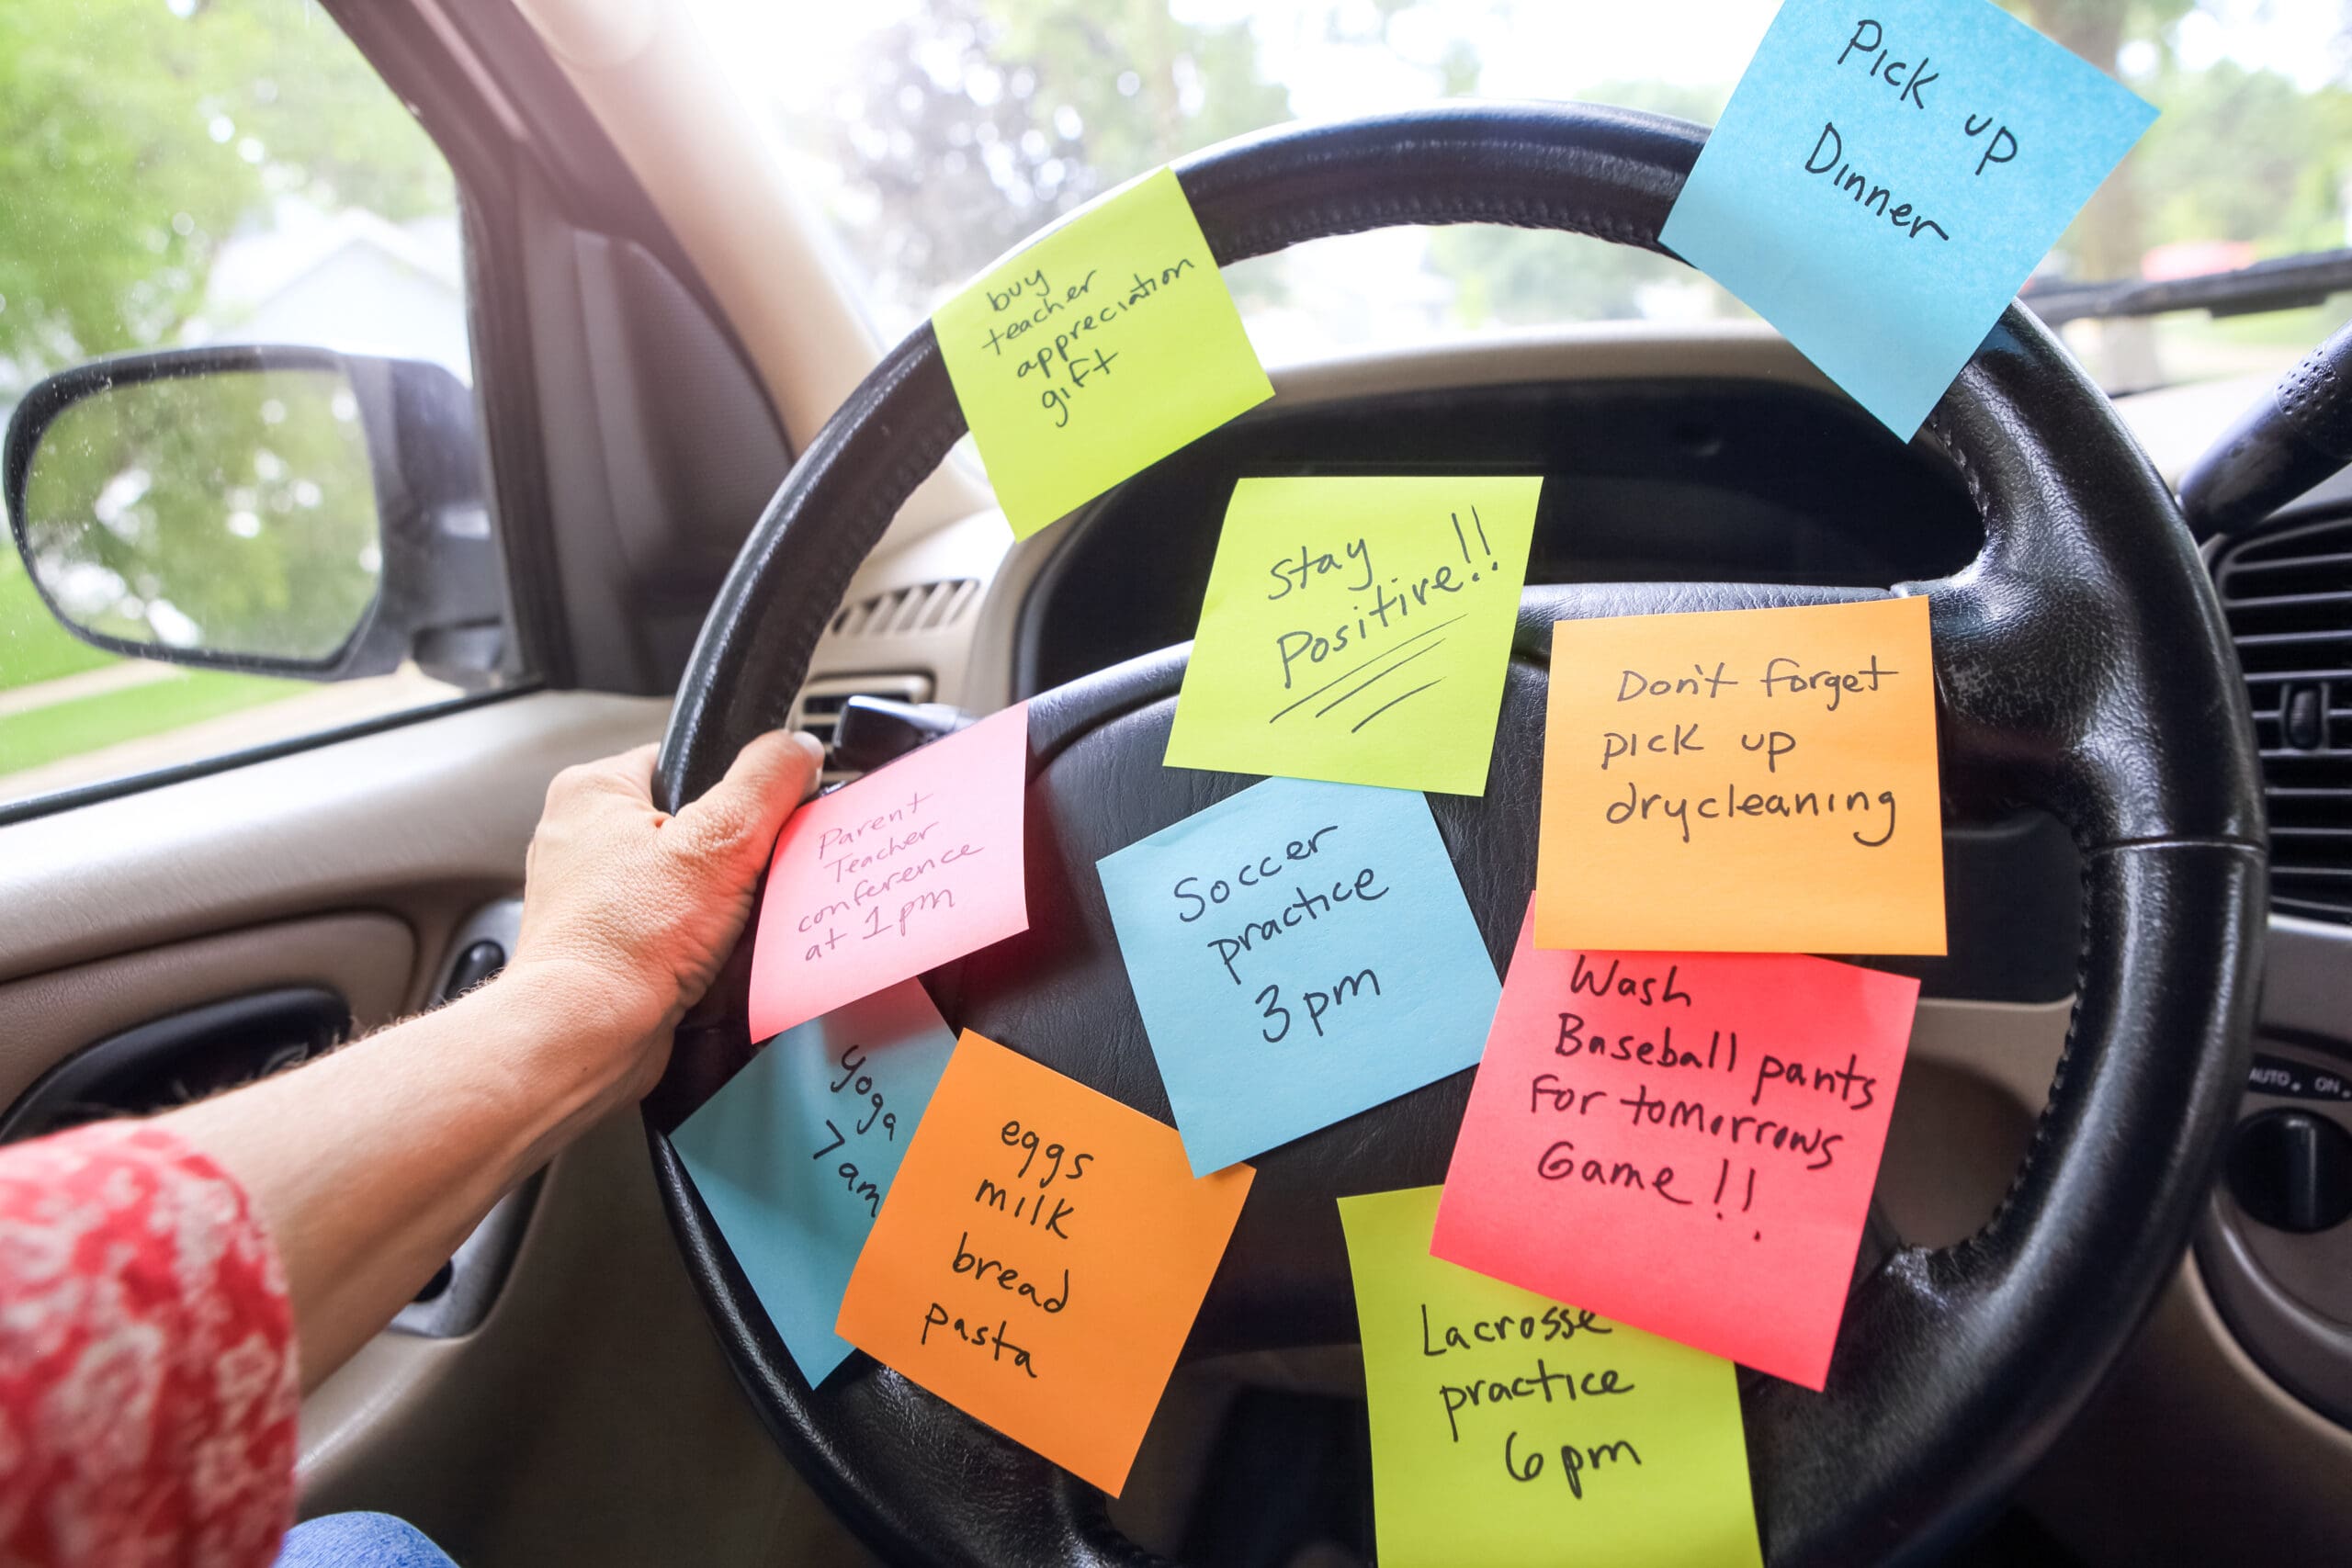 Pick up
Dinner
buy
teacher
appreciation
gift
Stay
Positive!!
Don't forget
pick up
drycleaning
Parent
Teacher
conference
at 1pm
Soccer
practice
3pm
Wash
Baseball pants
For tomorrows
Game!!
yoga
7am
eggs
milk
bread
pasta
Lacrosse
practice
6pm
AUTO. ON